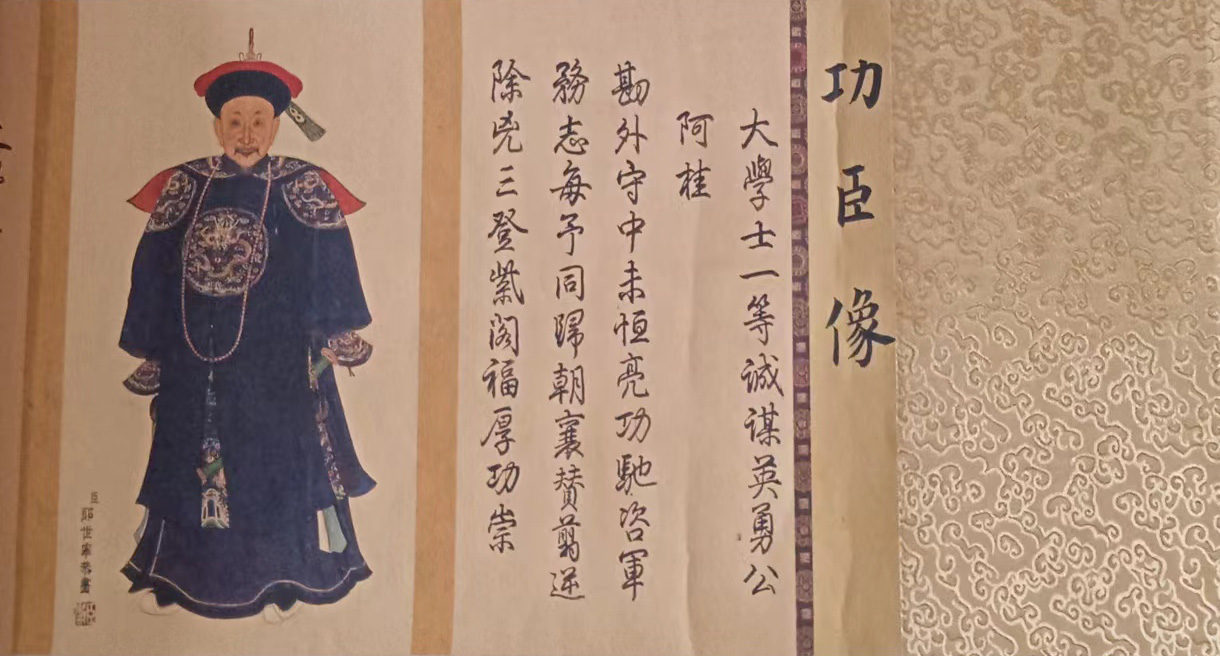 功臣像
大學士一等誠謀英勇公
阿桂
勘外守中未恒亮功馳咨軍
務志每予同歸朝襄贊翦逆
除兇三登紫閣福厚功崇
臣郎世寧恭畫